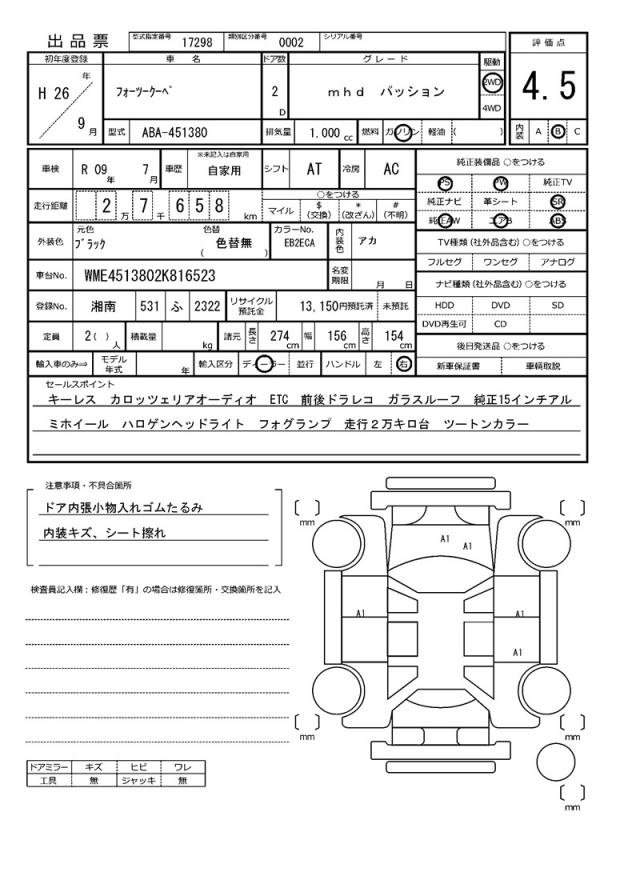 出品票 型式指定番号 17298 類別区分番号 0002 シリアル番号
初年度登録 車名 ドア数 グレード 駆動 評価点
H 26 年 9 月 フォーツークーペ 2 D mhd パッション 2WD 4WD 4.5
型式 ABA-451380 排気量 1.000 cc 燃料 ガソリン 軽油 ( ) 内装 A B C
車検 R 09 年 7 月 車歴 ※未記入は自家用 自家用 シフト AT 冷房 AC
走行距離 2 万 7 千 6 5 8 km ○をつける マイル $ (交換) * (改ざん) # (不明)
外装色 元色 ブラック 色替 色替無 ( ) カラーNo. EB2ECA 内装色 アカ
車台No. WME4513802K816523 名変期限 月 日
登録No. 湘南 531 ふ 2322 リサイクル預託金 13,150円預託済 未預託
定員 2( ) 人 積載量 kg 諸元 長さ 274 cm 幅 156 cm 高さ 154 cm
輸入車のみ⇒ モデル年式 年 輸入区分 ディーラー 並行 ハンドル 左 右
純正装備品 ○をつける
PS PW 純正TV
純正ナビ 革シート SR
純正AW エアB ABS
TV種類 (社外品含む) ○をつける
フルセグ ワンセグ アナログ
ナビ種類 (社外品含む) ○をつける
HDD DVD SD
DVD再生可 CD
後日発送品 ○をつける
新車保証書 車輌取説
セールスポイント
キーレス カロッツェリアオーディオ ETC 前後ドラレコ ガラスルーフ 純正15インチアル
ミホイール ハロゲンヘッドライト フォグランプ 走行２万キロ台 ツートンカラー
注意事項・不具合箇所
ドア内張小物入れゴムたるみ
内装キズ、シート擦れ
検査員記入欄：修復歴「有」の場合は修復箇所・交換箇所を記入
ドアミラー キズ ヒビ ワレ
工具 無 ジャッキ 無
mm mm
A1 A1
A1 A1
A1
mm mm
mm